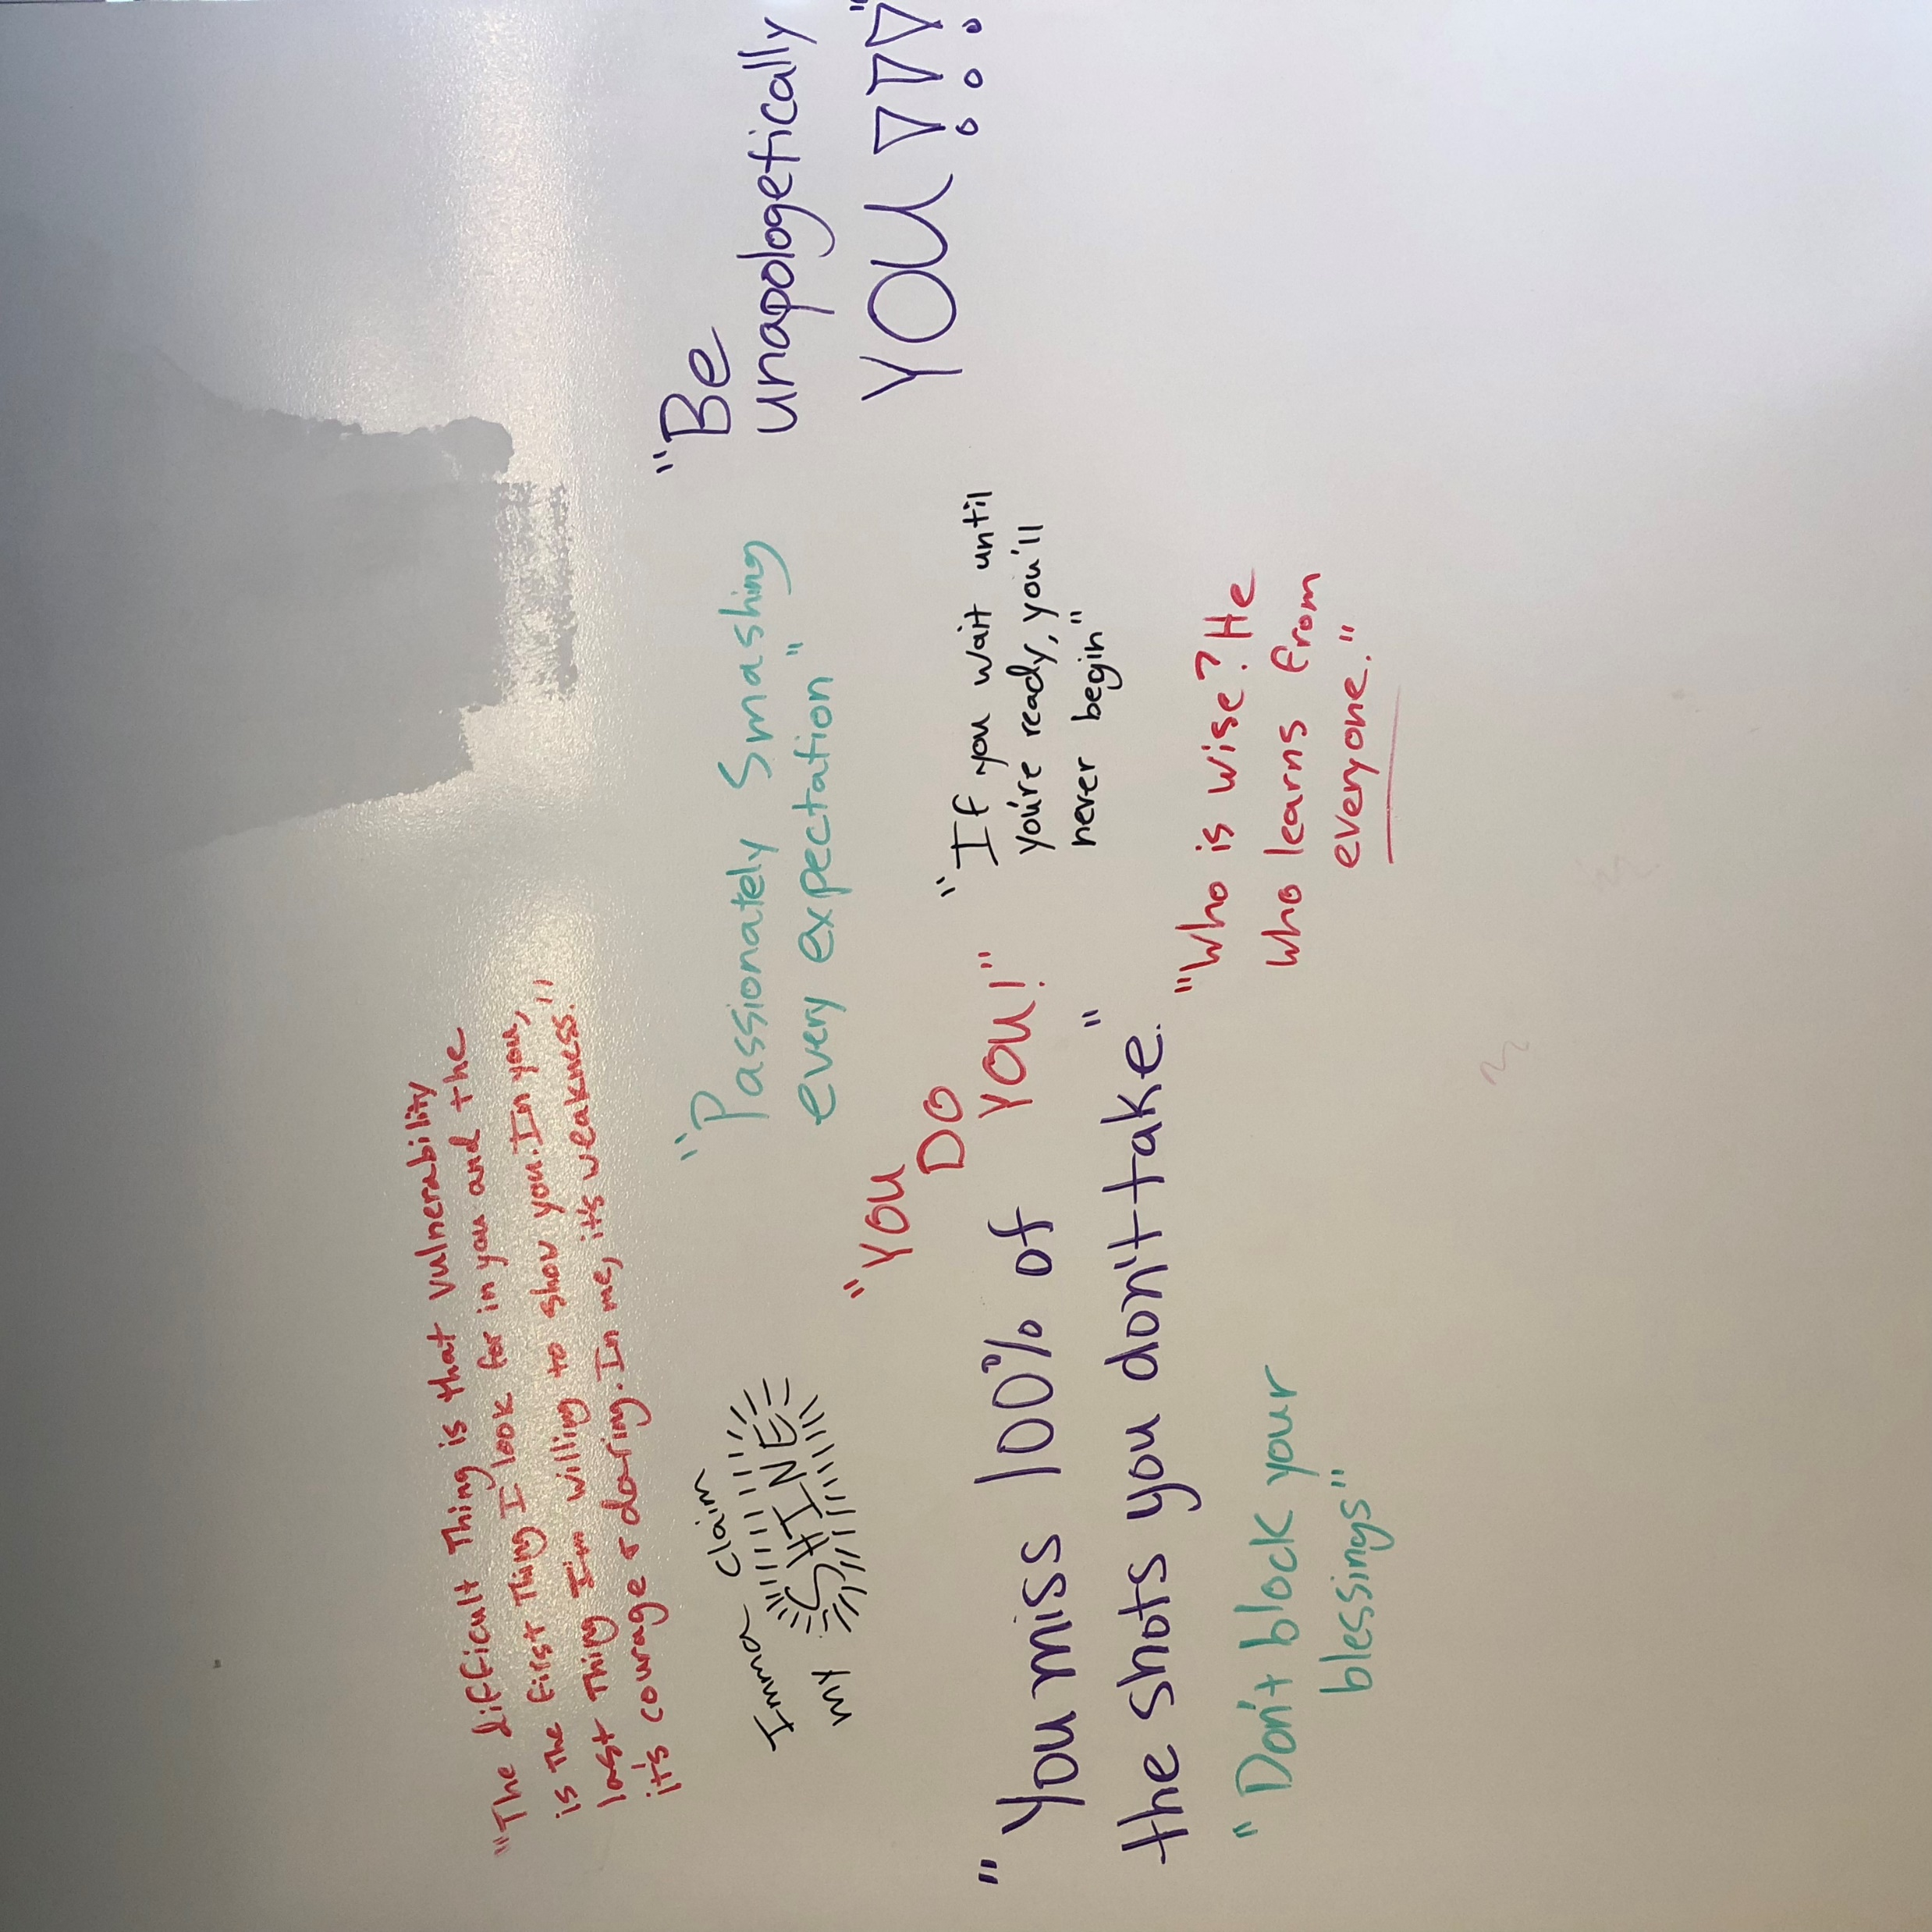 "The difficult Thing is that vulnerability
is The first Thing I look for in you and the
last Thing I'm willing to show you. In you,
it's courage & daring. In me, it's weakness."
Imma claim
my SHINE
"Passionately Smashing
every expectation"
"Be
unapologetically
YOU!!!"
"You
DO
You!"
"If you wait until
you're ready, you'll
never begin"
"You miss 100% of
the shots you don't take."
"Who is wise? He
who learns from
everyone."
"Don't block your
blessings"